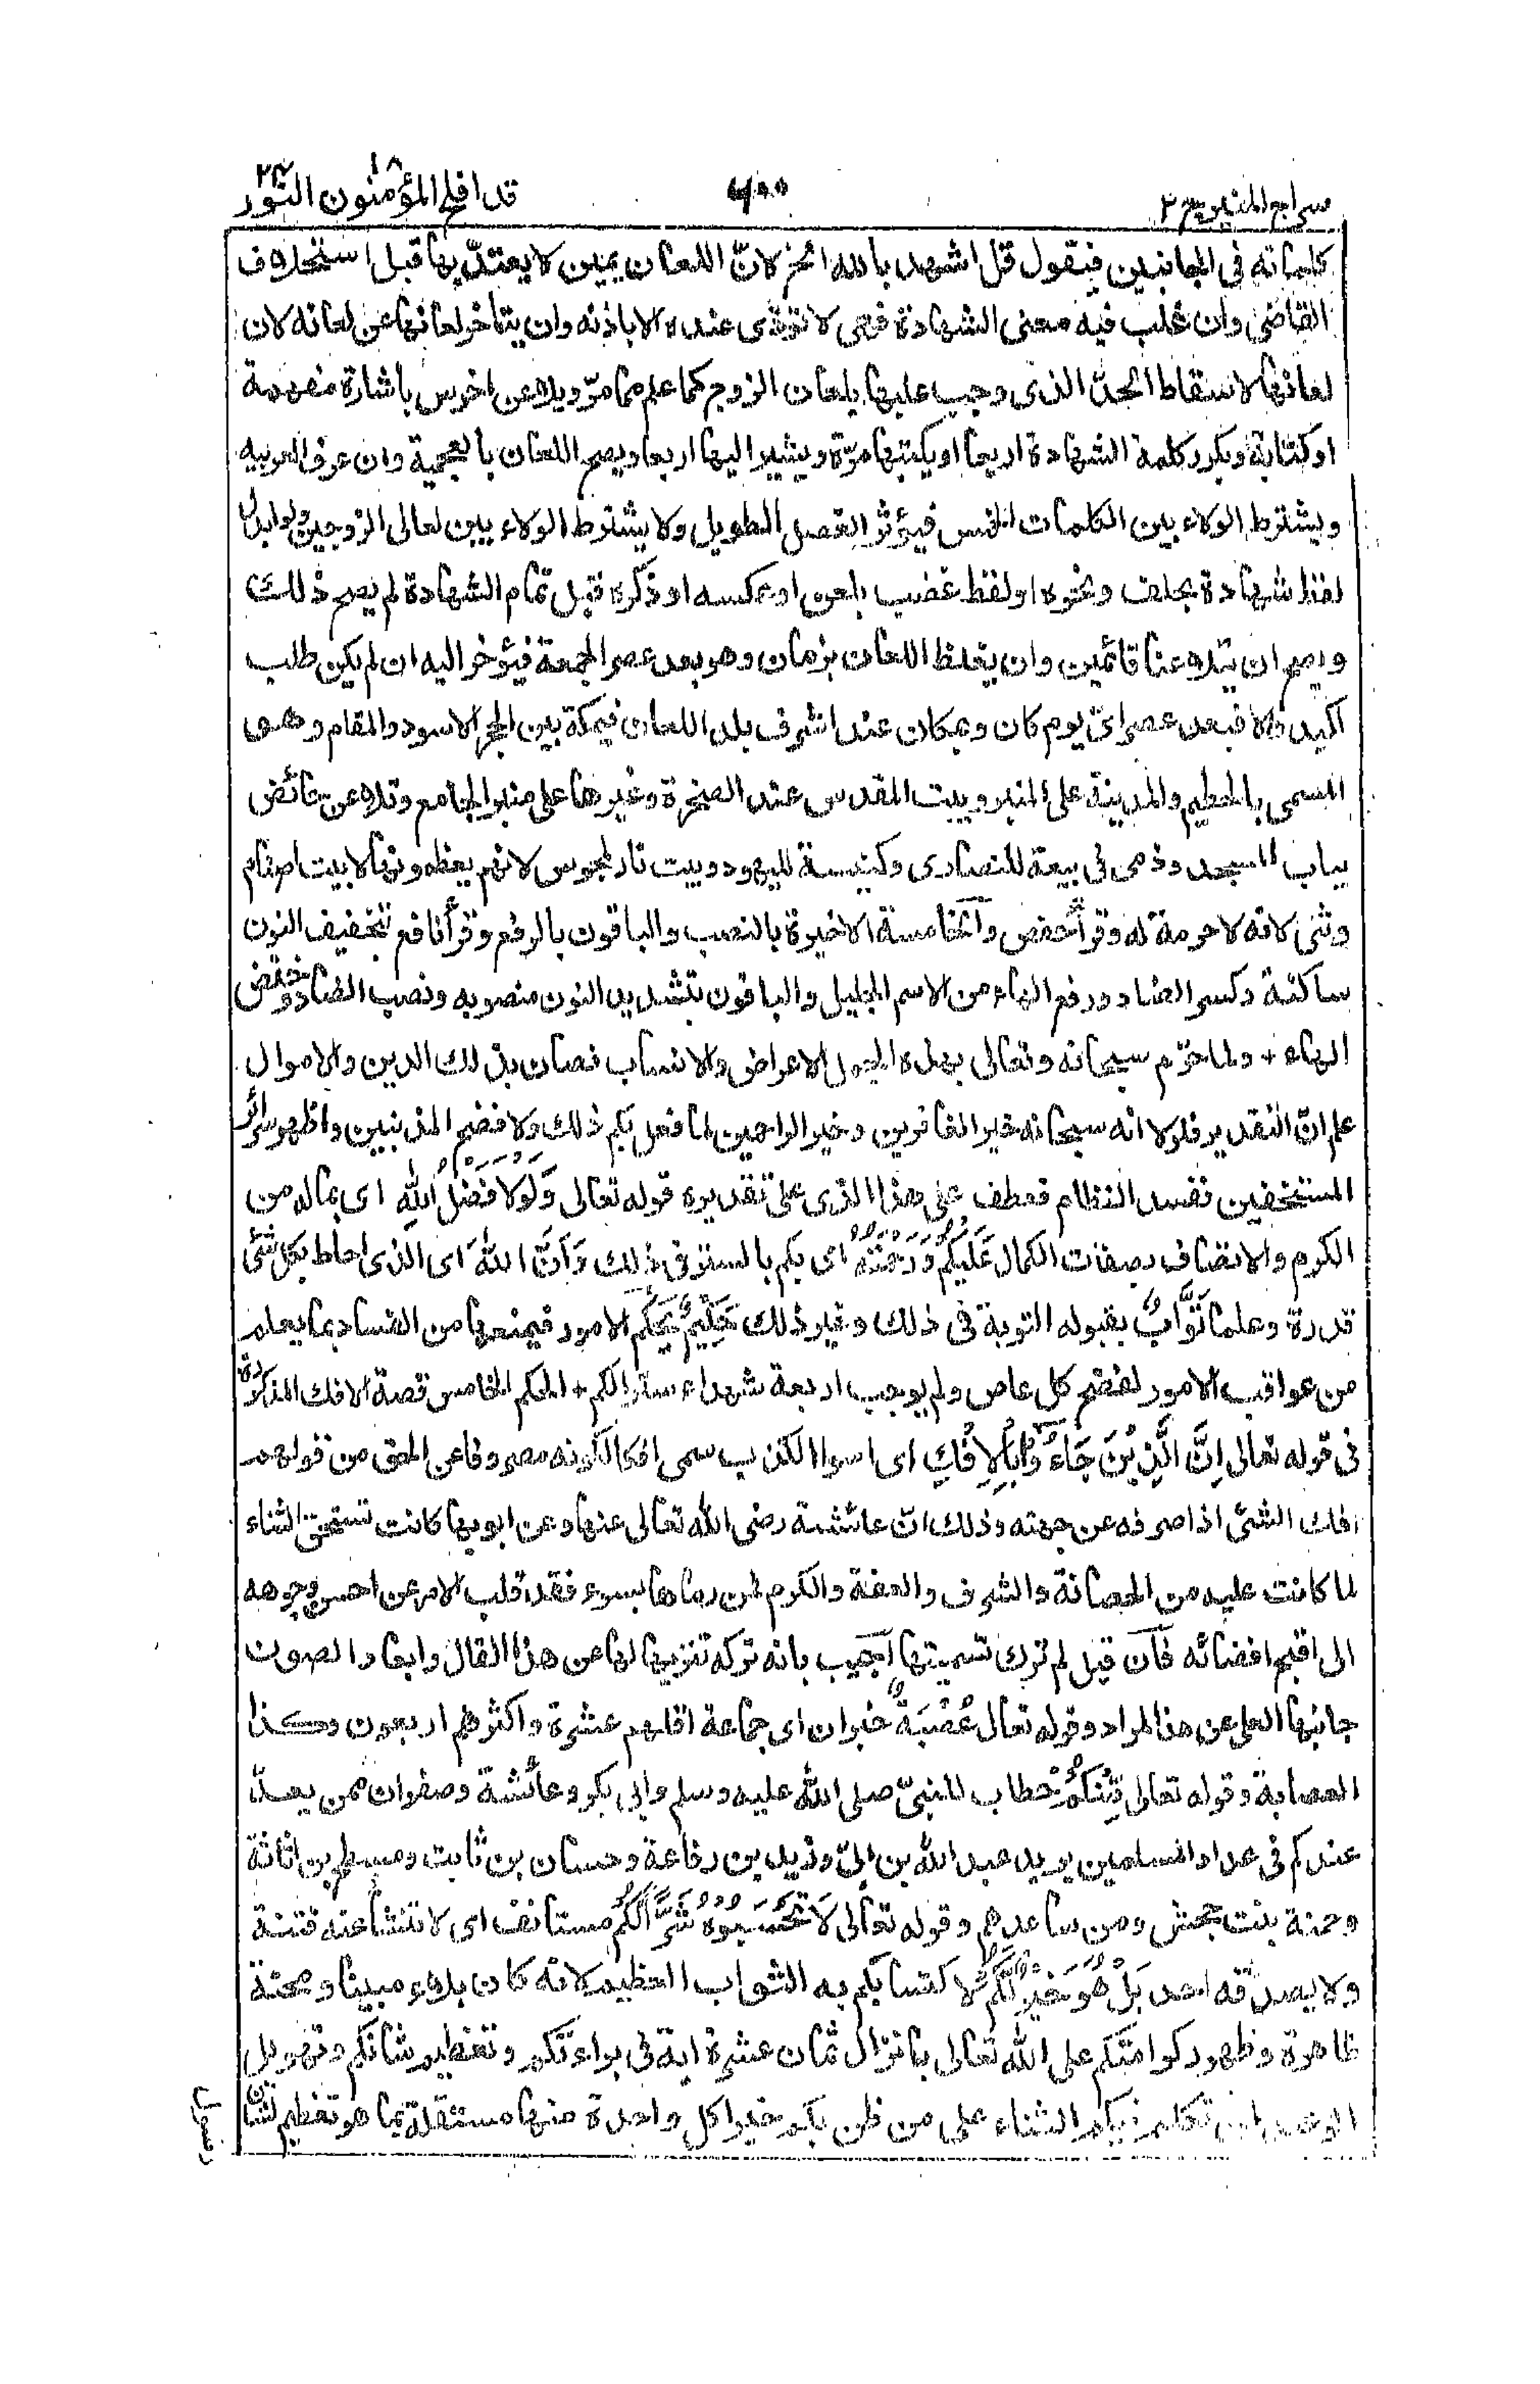 سراج المنير ج ٢
٦٠٠
قد افلح المؤمنون ١٨ النور ٢٤
كلماته فى الجانبين فيقول قل اشهد بالله الخ لانّ اللعان يمين لا يعتدّ بها قبل استحلاف
القاضى وان غلب فيه معنى الشهادة فهى لا تؤدى عنده الا باذنه وان يتاخر لعانها عن لعانه لان
لعانها لاسقاط الحدّ الذى وجب عليها بلعان الزوج كما علم مما مرّ ويلاعن اخرس باشارة مفهمة
او كتابة ويكرر كلمة الشهادة اربعا او يكتبها مرّة ويشير اليها اربعا ويصح اللعان بالعجمية وان عرف العربيه
ويشترط الولاء بين الكلمات الخمس فيؤثر الفصل الطويل ولا يشترط الولاء بين لعانى الزوجين ولو ابدل
لفظ شهادة بحلف ونحوه او لفظ غضب بلعن او عكسه او ذكره قبل تمام الشهادة لم يصح ذلك
ويصح ان يتلاعنا قائمين وان يغلظ اللعان بزمان وهو بعد عصر الجمعة فيؤخر اليه ان لم يكن طلب
اكيد والا فبعد عصر اىّ يوم كان وبمكان عند اشرف بلد اللعان فبمكة بين الحجر الاسود والمقام وهو
المسمى بالحطيم والمدينة على المنبر وبيت المقدس عند الصخرة وغيرها على منبر الجامع وتلاعن حائض
بباب المسجد وذمى فى بيعة للنصارى وكنيسة لليهود وبيت نار لمجوس لانهم يعظمونها لا بيت اصنام
وثنى لانه لا حرمة له وقرأ حفص والخامسة الاخيرة بالنصب والباقون بالرفع وقرأ نافع بتخفيف النون
ساكنة وكسر الضاد ورفع الهاء من الاسم الجليل والباقون بتشديد النون منصوبه ونصب الضاد وخفض
الهاء + ولما حرّم سبحانه وتعالى بهذه الجمل الاعراض والانساب فصان بذلك الدين والاموال
علم انّ التقدير فلولا انه سبحانه خير الغافرين وخير الراحمين لما فعل بكم ذلك ولا فضح المذنبين واظهر سرائر
المستخفين ففسد النظام فعطف على هذا الذى على تقديره قوله تعالى وَلَوْلَا فَضْلُ اللهِ اى بماله من
الكرم والاتصاف بصفات الكمال عَلَيْكُمْ وَرَحْمَتُهُ اى بكم بالستر فى ذلك وَاَنَّ اللهَ اى الذى احاط بكل شئ
قدرة وعلما تَوَّابٌ بقبوله التوبة فى ذلك وغير ذلك حَكِيْمٌ يحكم الامور فيمنعها من الفساد بما يعلم
من عواقب الامور لفضح كل عاص ولم يوجب اربعة شهداء سترا لكم + الحكم الخامس قصة الافك المذكورة
فى قوله تعالى اِنَّ الَّذِيْنَ جَاءُوْ بِالْاِفْكِ اى اسوا الكذب سمى افكا لكونه مصروفا عن الحق من قولهم
افك الشئ اذا صرفه عن جهته وذلك انّ عائشة رضى الله تعالى عنها وعن ابويها كانت تستحق الثناء
لما كانت عليه من الحصانة والشرف والعفة والكرم فمن رماها بسوء فقد قلب الامر عن احسن وجوهه
الى اقبح افضائه فان قيل لم ترك تسميتها اجيب بانه تركه تنزيها لها عن هذا القال وابعادا لصون
جانبها العلى عن هذا المراد وقوله تعالى عُصْبَةٌ خبر ان اى جماعة اقلهم عشرة واكثرهم اربعون وكذا
العصابة وقوله تعالى مِّنْكُمْ خطاب للنبىّ صلى الله عليه وسلم وابى بكر وعائشة وصفوان ممن يعدّ
عندكم فى عداد المسلمين يريد عبد الله بن ابىّ وزيد بن رفاعة وحسان بن ثابت ومسطح بن اثاثة
وحمنة بنت جحش ومن ساعدهم وقوله تعالى لَا تَحْسَبُوْهُ شَرًّا لَّكُمْ مستانف اى لا تنشأ عنه فتنة
ولا يصدّقه احد بَلْ هُوَ خَيْرٌ لَّكُمْ لاكتسابكم به الثواب العظيم لانه كان بلاء مبينا ومحنة
ظاهرة وظهور كرامتكم على الله تعالى بانزال ثمان عشرة اية فى براءتكم وتعظيم شانكم وتهويل
الوعيد لمن تكلم فيكم الثناء على من ظن بكم خيرا كل واحدة منها مستقلة بما هو تعظيم لشان